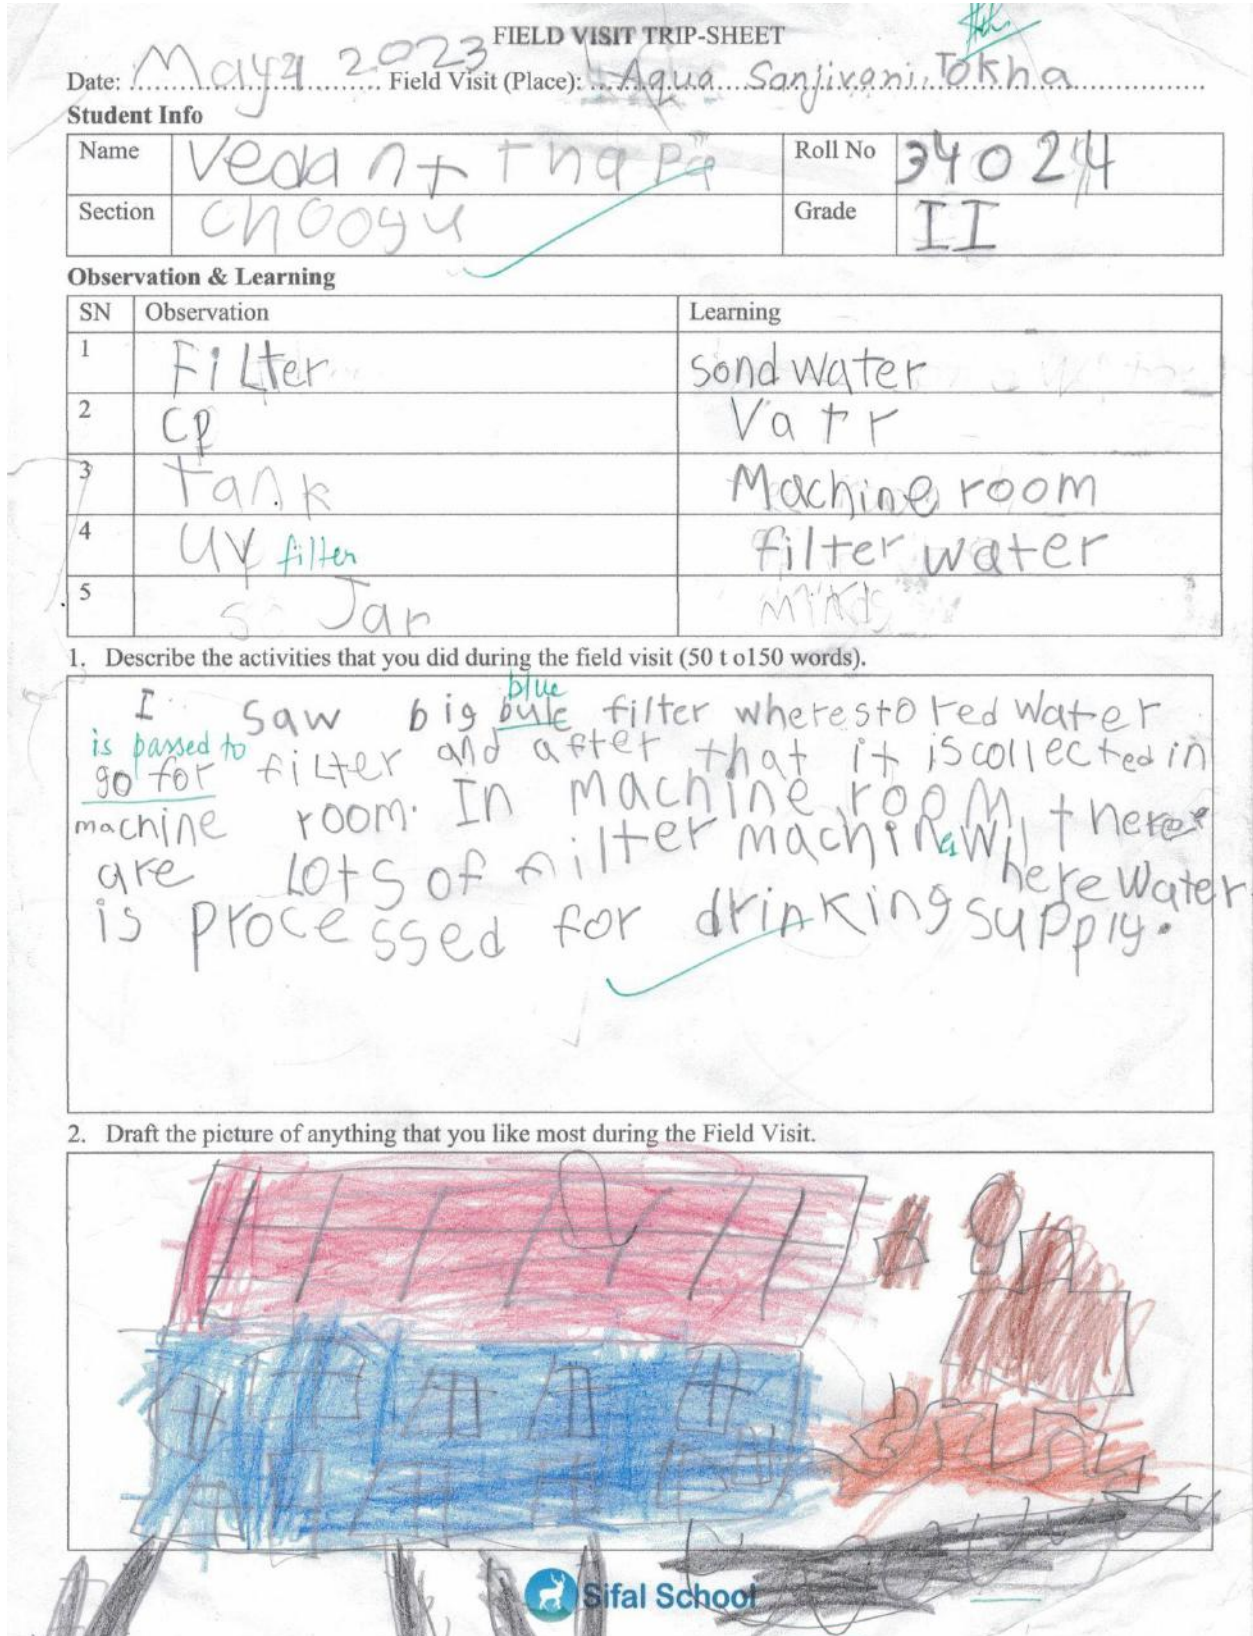 FIELD VISIT TRIP-SHEET
Date: May 2023 Field Visit (Place): Aqua Sanjivani, Tokha
Student Info
Name Vedant Thapa Roll No 34024
Section choogu Grade II
Observation & Learning
SN Observation Learning
1 Filter sond water
2 CP Vatr
3 Tank Machine room
4 UV filter filter water
5 Jar
1. Describe the activities that you did during the field visit (50 t o150 words).
blue
I saw big bule filter where stored water
is passed to
go for filter and after that it is collected in
machine room. In machine room there
are Lots of filter machines here water
is processed for drinking supply.
2. Draft the picture of anything that you like most during the Field Visit.
Sifal School